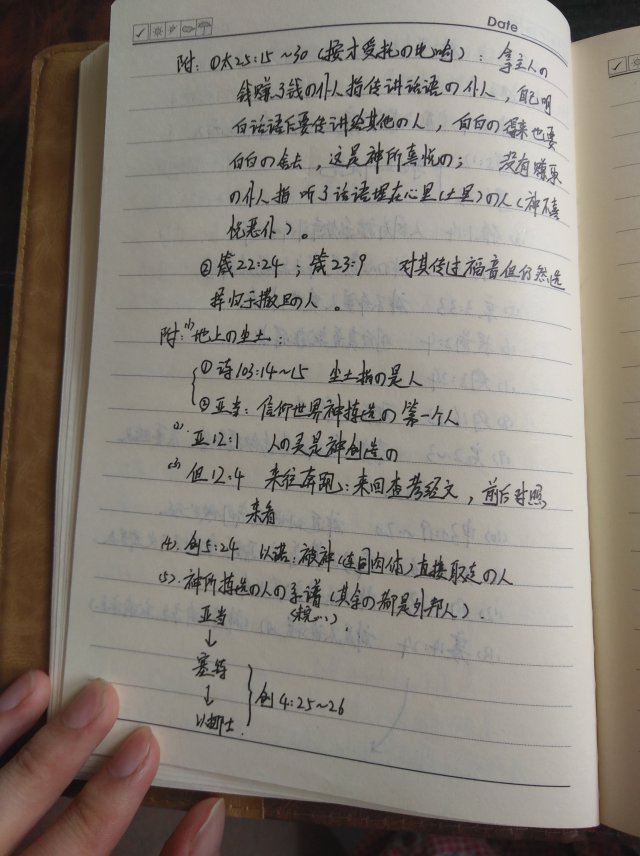 Date
附: ①太25:15~30 (按才受托的比喻): 拿主人の
钱赚了钱の仆人指传讲话语の仆人, 自己明
白话语后要传讲给其他の人, 白白の得来也要
白白の舍去, 这是神所喜悦の; 没有赚取
の仆人指 听了话语埋在心里(土里)の人(神不喜
悦恶仆)。
②箴22:24; 箴23:9 对其传过福音但仍然选
择归于撒旦の人。
附: (1) 地上の尘土:
①诗103:14~15 尘土指の是人
②亚当: 信仰世界神拣选の第一个人
(2) 亚12:1 人の灵是神创造の
(3) 但12:4 来往奔跑: 来回查考经文, 前后对照
来看
(4). 创5:24 以诺: 被神(连同肉体)直接取走の人
(5). 神所拣选の人の系谱(其余の都是外邦人).
亚当
↓
塞特
↓
以挪士.
创4:25~26